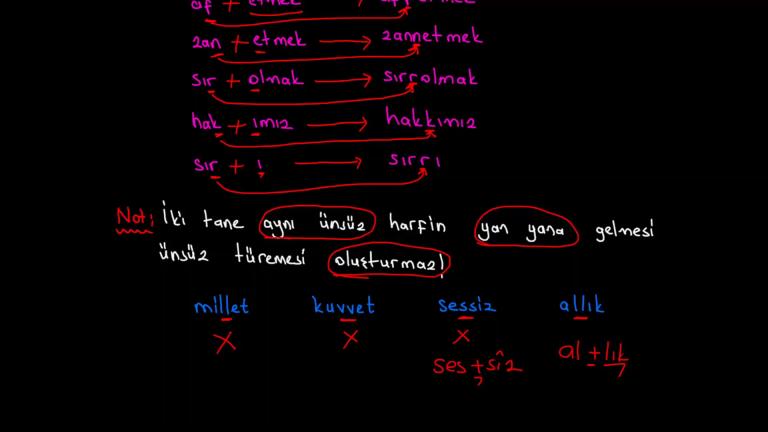 af + etmek →
zan + etmek → zannetmek
sır + olmak → sırrolmak
hak + ımız → hakkımız
sır + ı → sırrı
Not: İki tane aynı ünsüz harfin yan yana gelmesi
ünsüz türemesi oluşturmaz!
millet kuvvet sessiz allık
X X X
ses + siz al + lık